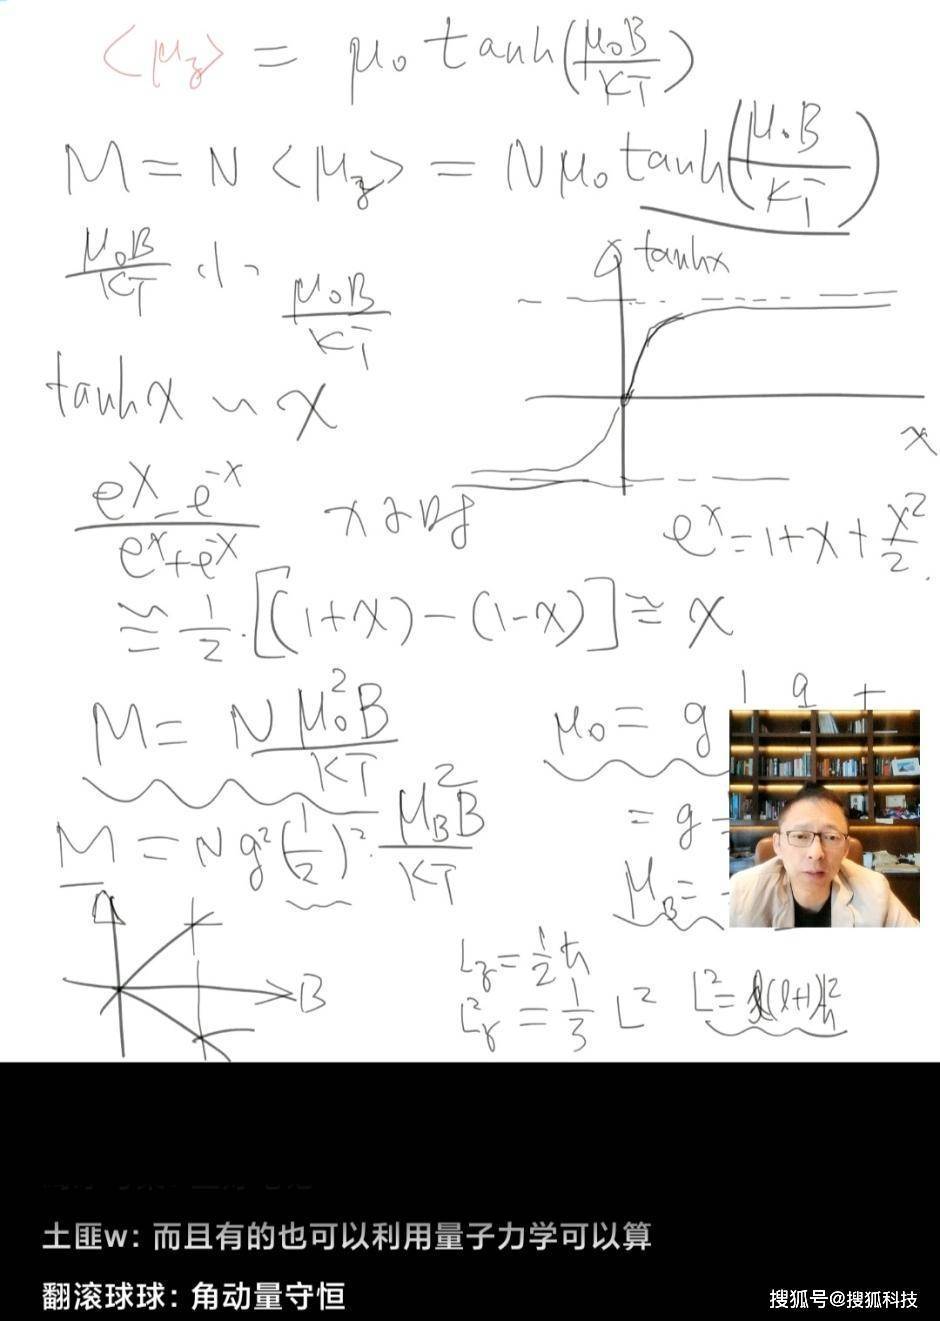 <μz> = μ₀ tanh(μ₀B/KT)
M = N <μz> = Nμ₀ tanh(μ₀B/KT)
μ₀B/KT 小 ~ μ₀B/KT
tanhx
x
tanhx ~ x
(e^x - e^-x)/(e^x + e^-x)
e^x = 1+x+x²/2
≅ 1/2·[(1+x)-(1-x)] ≅ x
M = Nμ₀²B/KT
μ₀ = g
M = N g²(1/2)²·μ_B²B/KT
= g
μ_B =
B
Lz = 1/2 ħ
= 1/3 L² L² = l(l+1)ħ²
土匪w: 而且有的也可以利用量子力学可以算
翻滚球球: 角动量守恒
搜狐号@搜狐科技